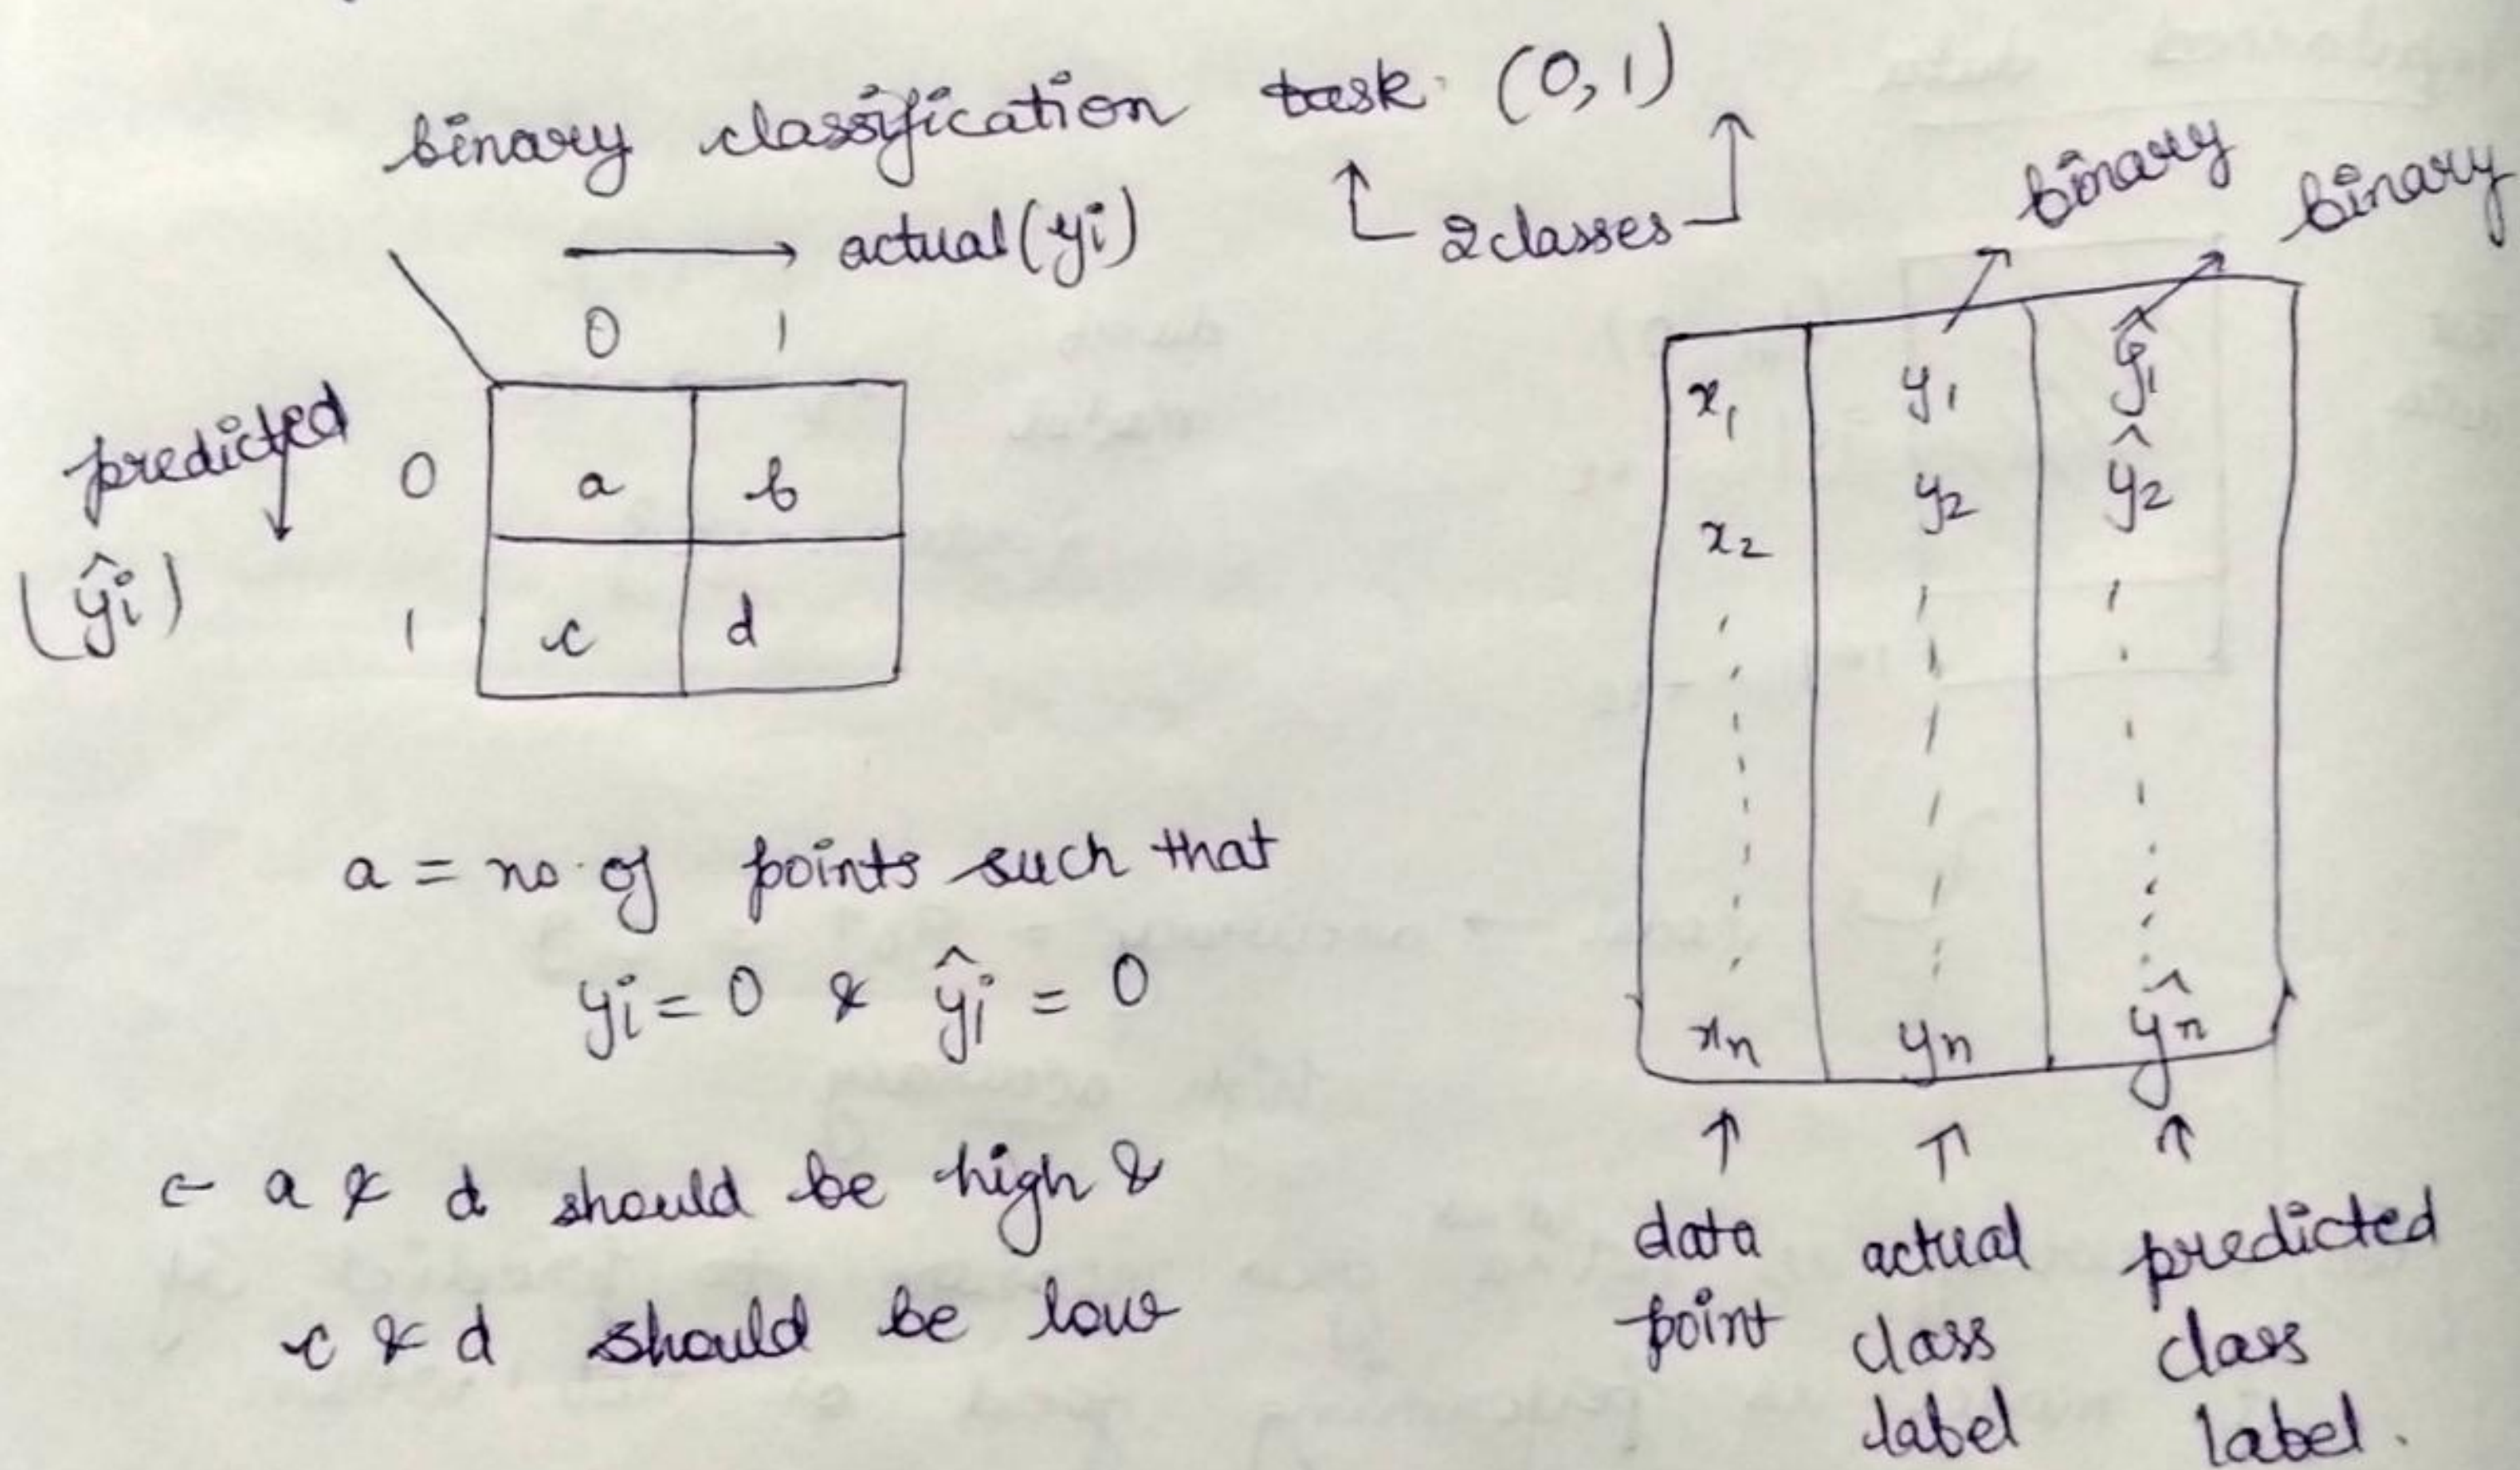 binary classification task (0,1)
2 classes
actual (yi)
0 1
predicted
(ŷi)
0 a b
1 c d
a = no. of points such that
yi = 0 & ŷi = 0
a & d should be high &
c & d should be low
binary binary
x1 y1 ŷ1
x2 y2 ŷ2
xn yn ŷn
data actual predicted
point class class
label label.